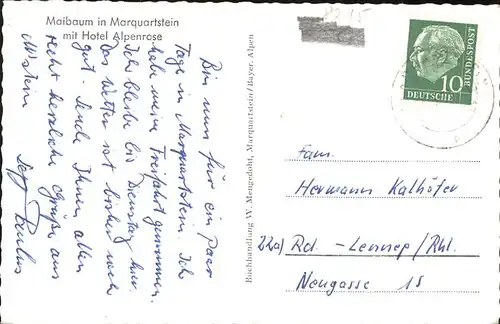 Maibaum in Marquartstein
mit Hotel Alpenrose
Bin nun für ein paar
Tage in Marquartstein. Ich
habe meine Freifahrt genommen.
Ich bleibe bis Dienstag hier.
Das Wetter ist bisher noch
gut. Sende Ihnen allen
recht herzliche Grüße aus
M'stein
Buchhandlung W. Mengedoht, Marquartstein/Bayer. Alpen
DEUTSCHE
BUNDESPOST
10
Fam.
Hermann Kalhöfer
22a) Rd.-Lennep/Rhl.
Neugasse 15